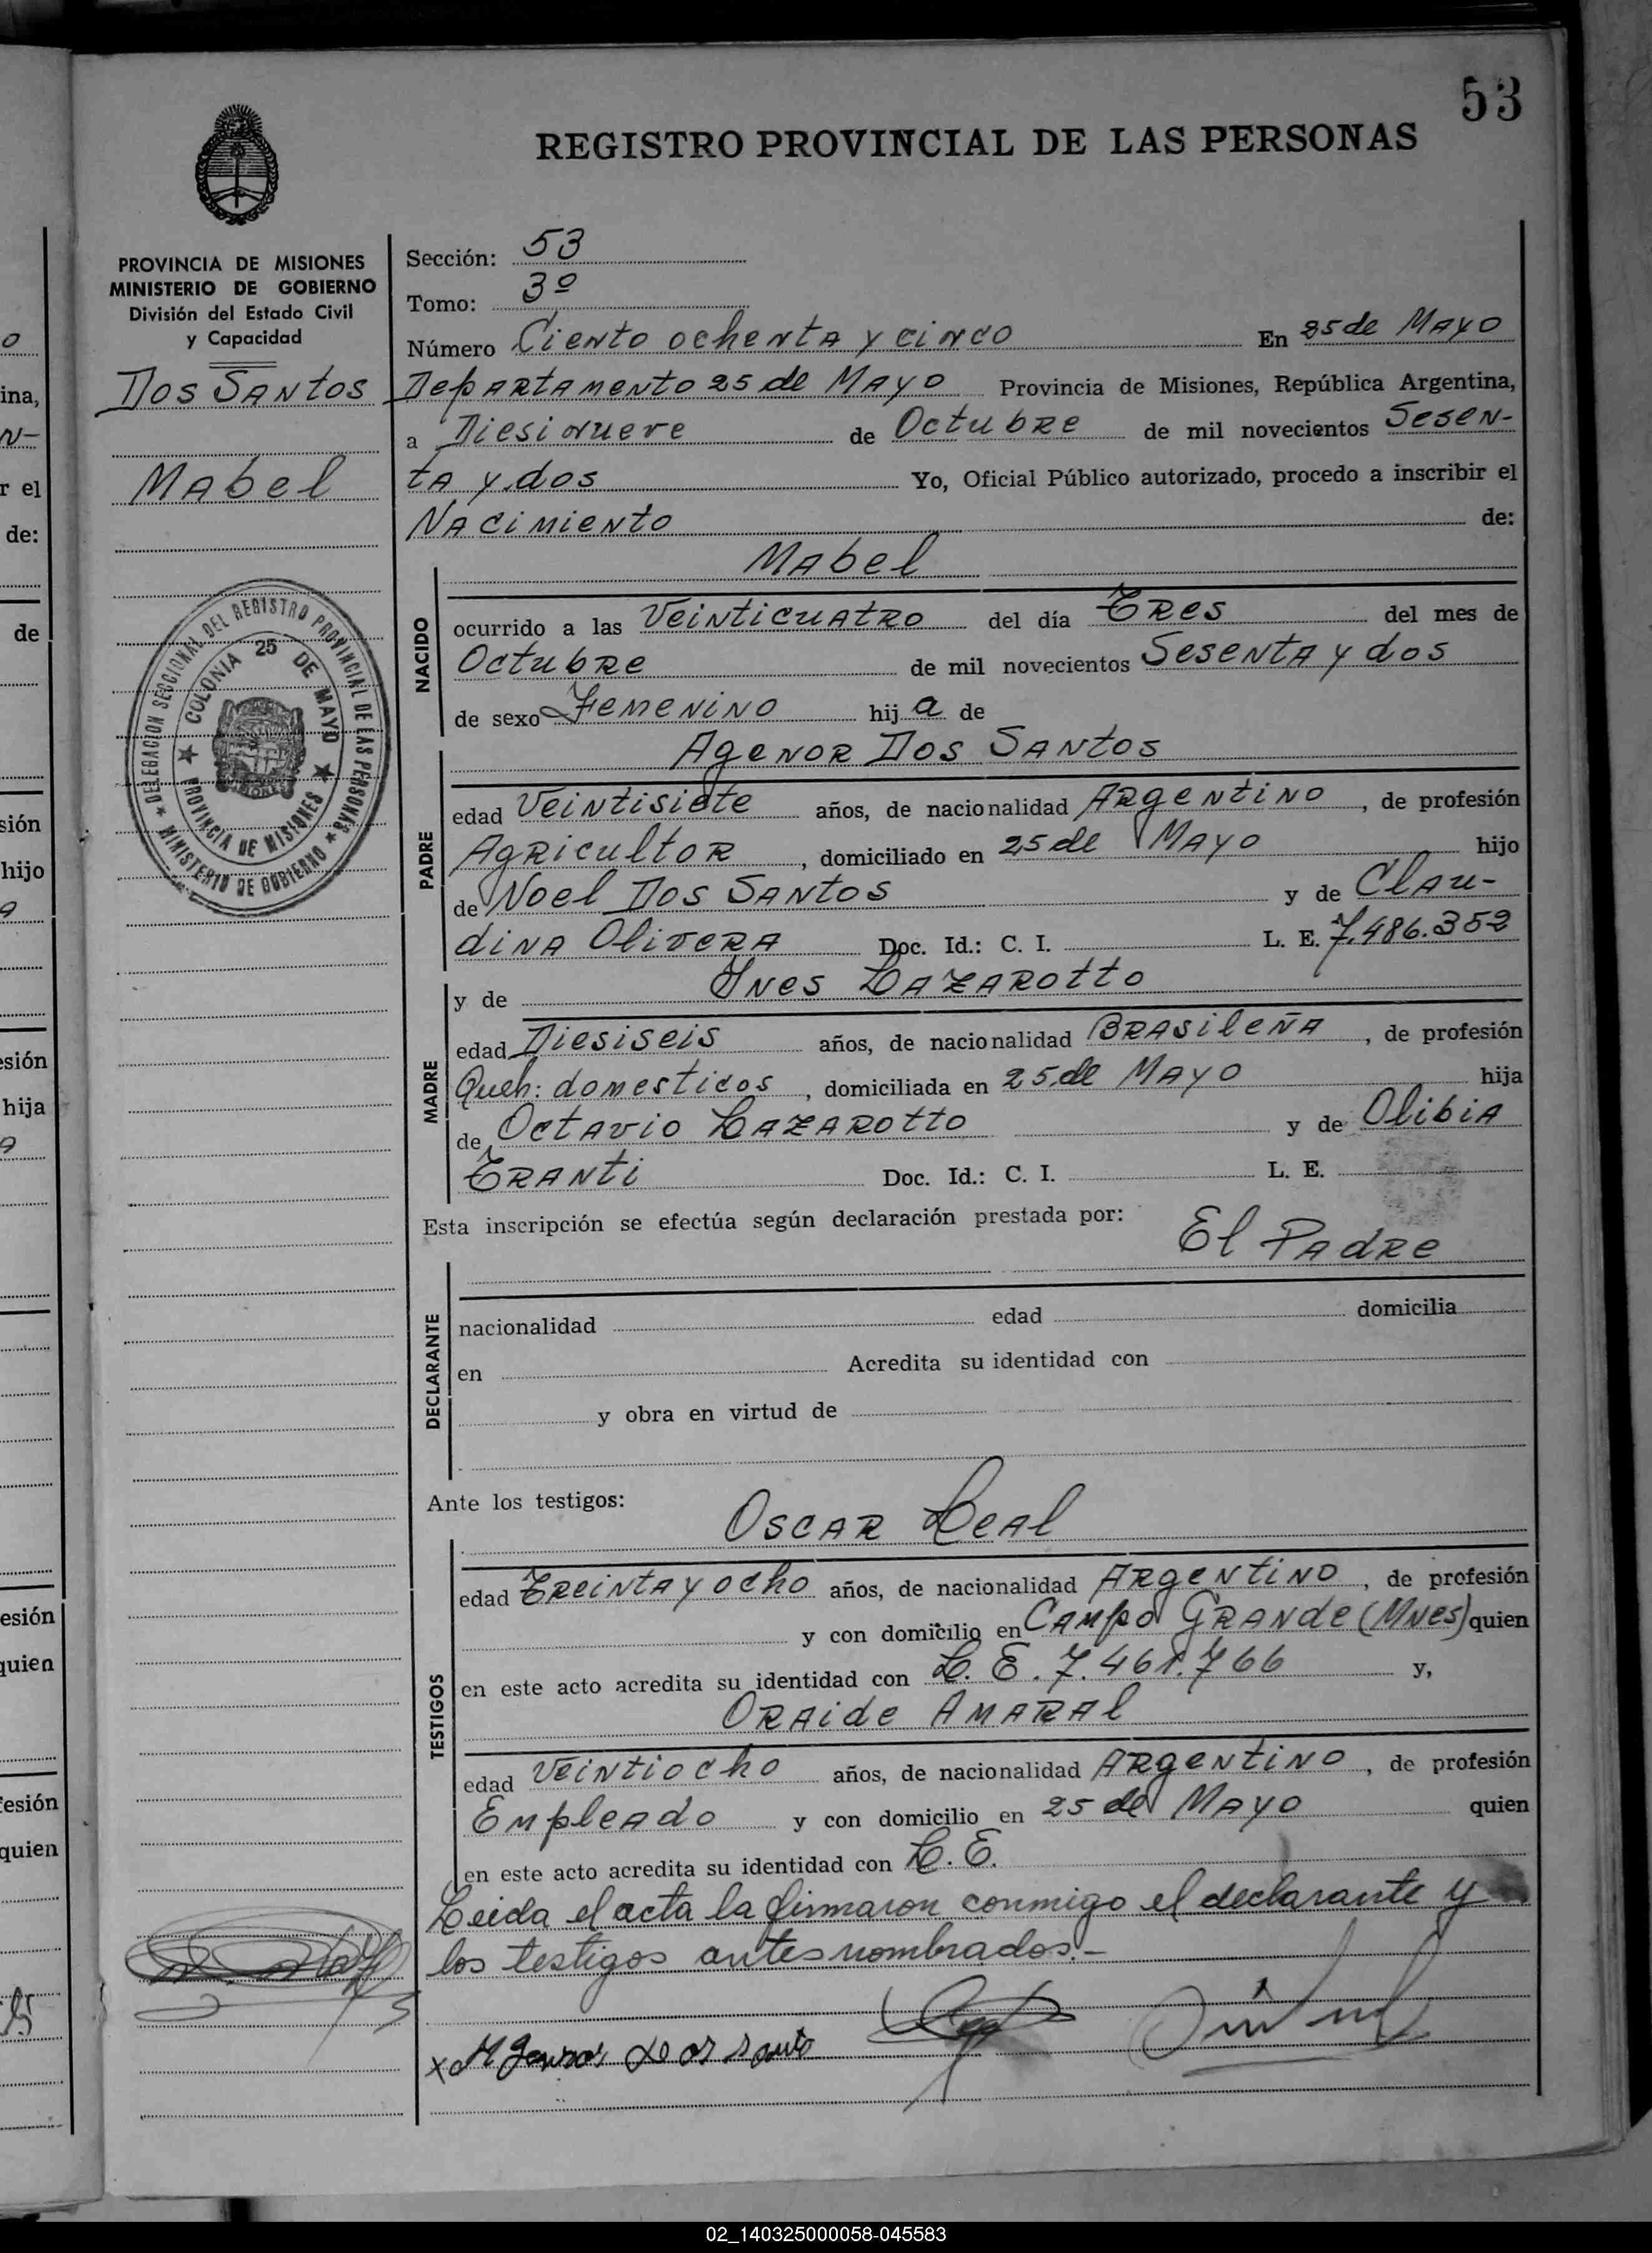 53
REGISTRO PROVINCIAL DE LAS PERSONAS
PROVINCIA DE MISIONES
MINISTERIO DE GOBIERNO
División del Estado Civil
y Capacidad
Dos Santos
Mabel
DELEGACION SECCIONAL DEL REGISTRO PROVINCIAL DE LAS PERSONAS
MINISTERIO DE GOBIERNO
COLONIA 25 DE MAYO
PROVINCIA DE MISIONES
Sección: 53
Tomo: 3º
Número Ciento ochenta y cinco En 25 de Mayo
Departamento 25 de Mayo Provincia de Misiones, República Argentina,
a Diesinueve de Octubre de mil novecientos Sesen-
ta y dos Yo, Oficial Público autorizado, procedo a inscribir el
Nacimiento de:
Mabel
NACIDO
ocurrido a las Veinticuatro del día Tres del mes de
Octubre de mil novecientos Sesenta y dos
de sexo Femenino hija de
Agenor Dos Santos
PADRE
edad Veintisiete años, de nacionalidad Argentino, de profesión
Agricultor, domiciliado en 25 de Mayo hijo
de Noel Dos Santos y de Clau-
dina Olivera Doc. Id.: C. I. L. E. 7.486.352
y de Ines Lazarotto
MADRE
edad Diesiseis años, de nacionalidad Brasileña, de profesión
Queh: domesticos, domiciliada en 25 de Mayo hija
de Octavio Lazarotto y de Olibia
Tranti Doc. Id.: C. I. L. E.
Esta inscripción se efectúa según declaración prestada por:
El Padre
DECLARANTE
nacionalidad edad domicilia
en Acredita su identidad con
y obra en virtud de
Ante los testigos:
Oscar Leal
TESTIGOS
edad Treinta y ocho años, de nacionalidad Argentino, de profesión
y con domicilio en Campo Grande (Mnes) quien
en este acto acredita su identidad con L. E. 7.461.766 y,
Oraide Amaral
edad Veintiocho años, de nacionalidad Argentino, de profesión
Empleado y con domicilio en 25 de Mayo quien
en este acto acredita su identidad con L. E.
Leida el acta la firmaron conmigo el declarante y
los testigos antes nombrados.-
o
ina,
N-
r el
de:
de
sión
hijo
a
esión
hija
a
esión
quien
esión
quien
02_140325000058-045583